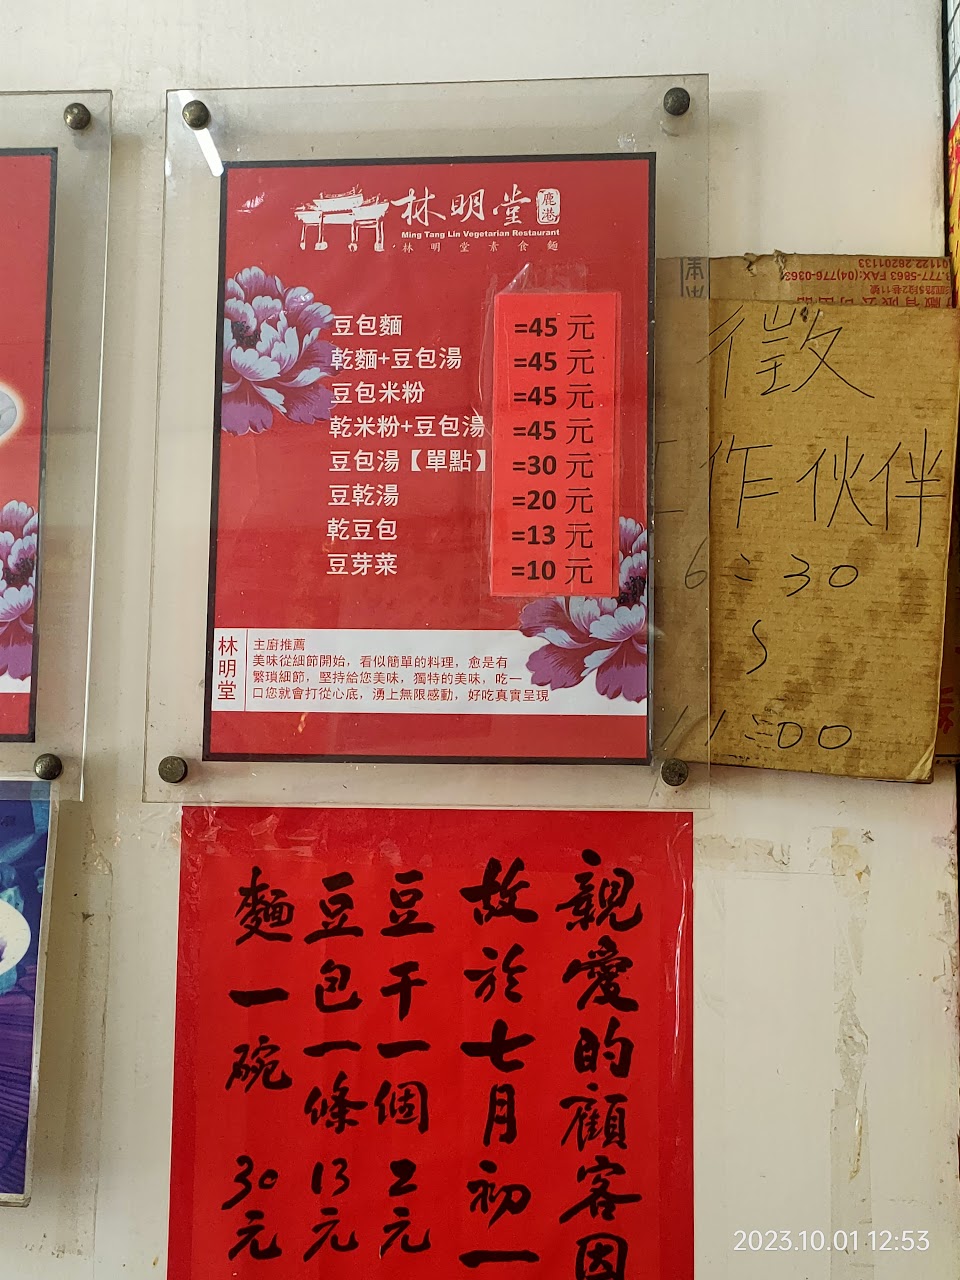 林明堂 鹿港
Ming Tang Lin Vegetarian Restaurant
林明堂素食麵
豆包麵 =45 元
乾麵+豆包湯 =45 元
豆包米粉 =45 元
乾米粉+豆包湯 =45 元
豆包湯【單點】 =30 元
豆乾湯 =20 元
乾豆包 =13 元
豆芽菜 =10 元
林明堂
主廚推薦
美味從細節開始，看似簡單的料理，愈是有
繁瑣細節，堅持給您美味，獨特的美味，吃一
口您就會打從心底，湧上無限感動，好吃真實呈現
徵
工作伙伴
6:30
~
11:00
親愛的顧客因
故於七月初一
豆干一個 2元
豆包一條 13元
麵一碗 30元
2023.10.01 12:53